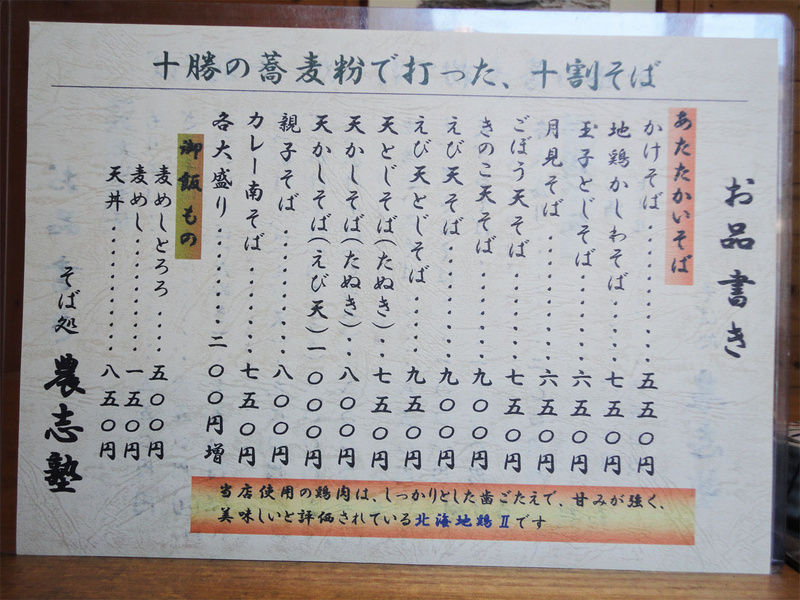 十勝の蕎麦粉で打った、十割そば
お品書き
あたたかいそば
かけそば............五五〇円
地鶏かしわそば......七五〇円
玉子とじそば........六五〇円
月見そば............六五〇円
ごぼう天そば........七五〇円
きのこ天そば........九〇〇円
えび天そば..........九〇〇円
えび天とじそば......九五〇円
天とじそば(たぬき)..七五〇円
天かしそば(たぬき)..八〇〇円
天かしそば(えび天)一〇〇〇円
親子そば............八〇〇円
カレー南そば........七五〇円
各大盛り........二〇〇円増
御飯もの
麦めしとろろ....五〇〇円
麦めし..........一五〇円
天丼............八五〇円
そば処 農志塾
当店使用の鶏肉は、しっかりとした歯ごたえで、甘みが強く、
美味しいと評価されている北海地鶏Ⅱです